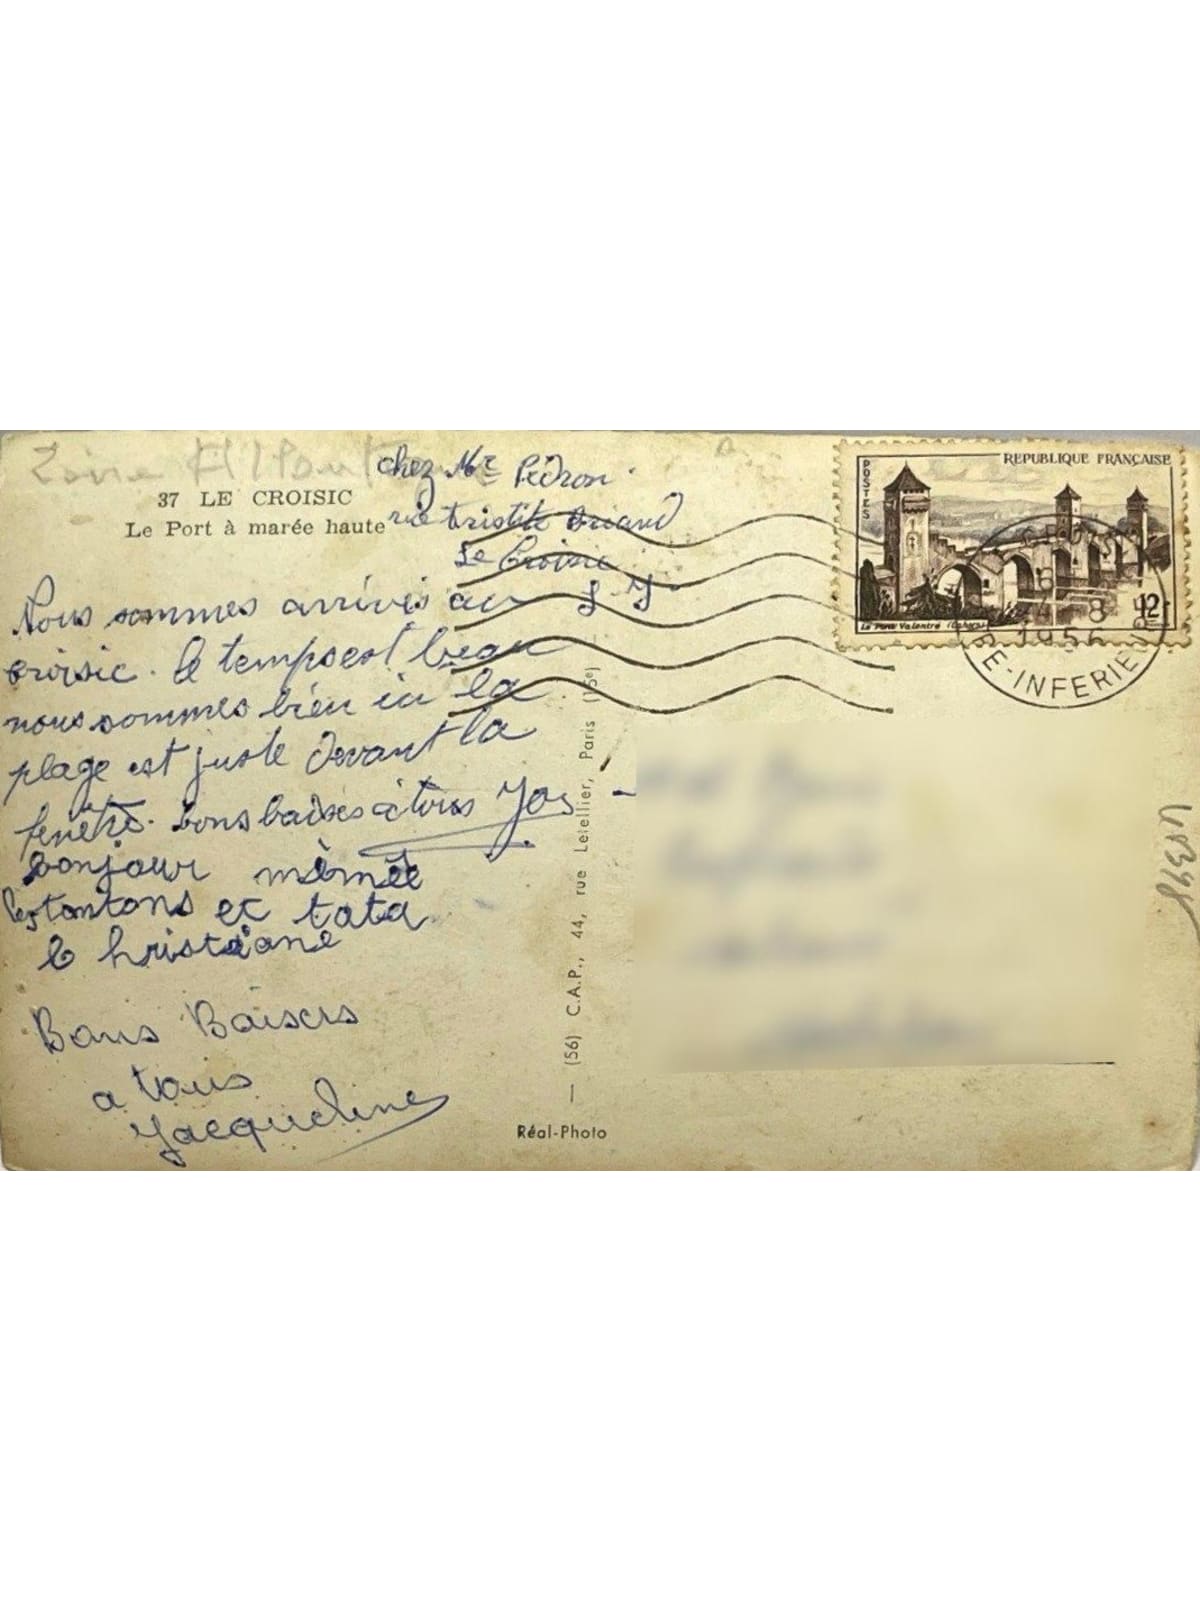 37 LE CROISIC
Le Port à marée haute
chez Mr Pédron
rue Aristide Briand
Le Croisic
Nous sommes arrivés au
croisic. le temps est beau
nous sommes bien ici la
plage est juste devant la
fenêtre. bons baisés à tous
bonjour mémée
les tontons et tata
christiane
Bons Baisers
a tous
Jacqueline
Réal-Photo
— (56) C.A.P., 44, rue Letellier, Paris (15e)
POSTES
REPUBLIQUE FRANÇAISE
Le Pont Valentré (Cahors)
12f
RE-INFERIEURE